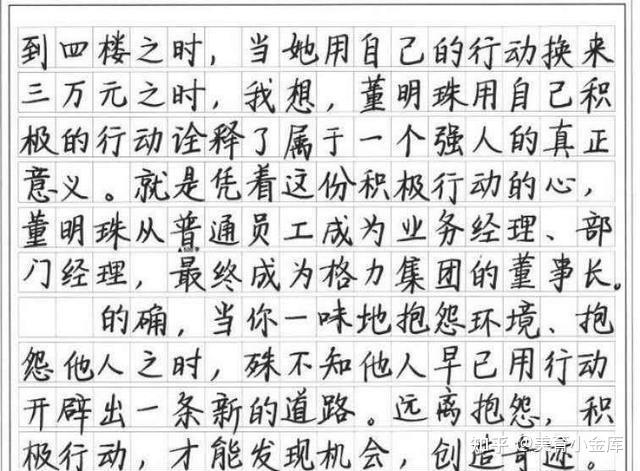 到四楼之时，当她用自己的行动换来
三万元之时，我想，董明珠用自己积
极的行动诠释了属于一个强人的真正
意义。就是凭着这份积极行动的心，
董明珠从普通员工成为业务经理、部
门经理，最终成为格力集团的董事长。
的确，当你一味地抱怨环境、抱
怨他人之时，殊不知他人早已用行动
开辟出一条新的道路。远离抱怨，积
极行动，才能发现机会，创造奇迹
知乎 @美育小金库